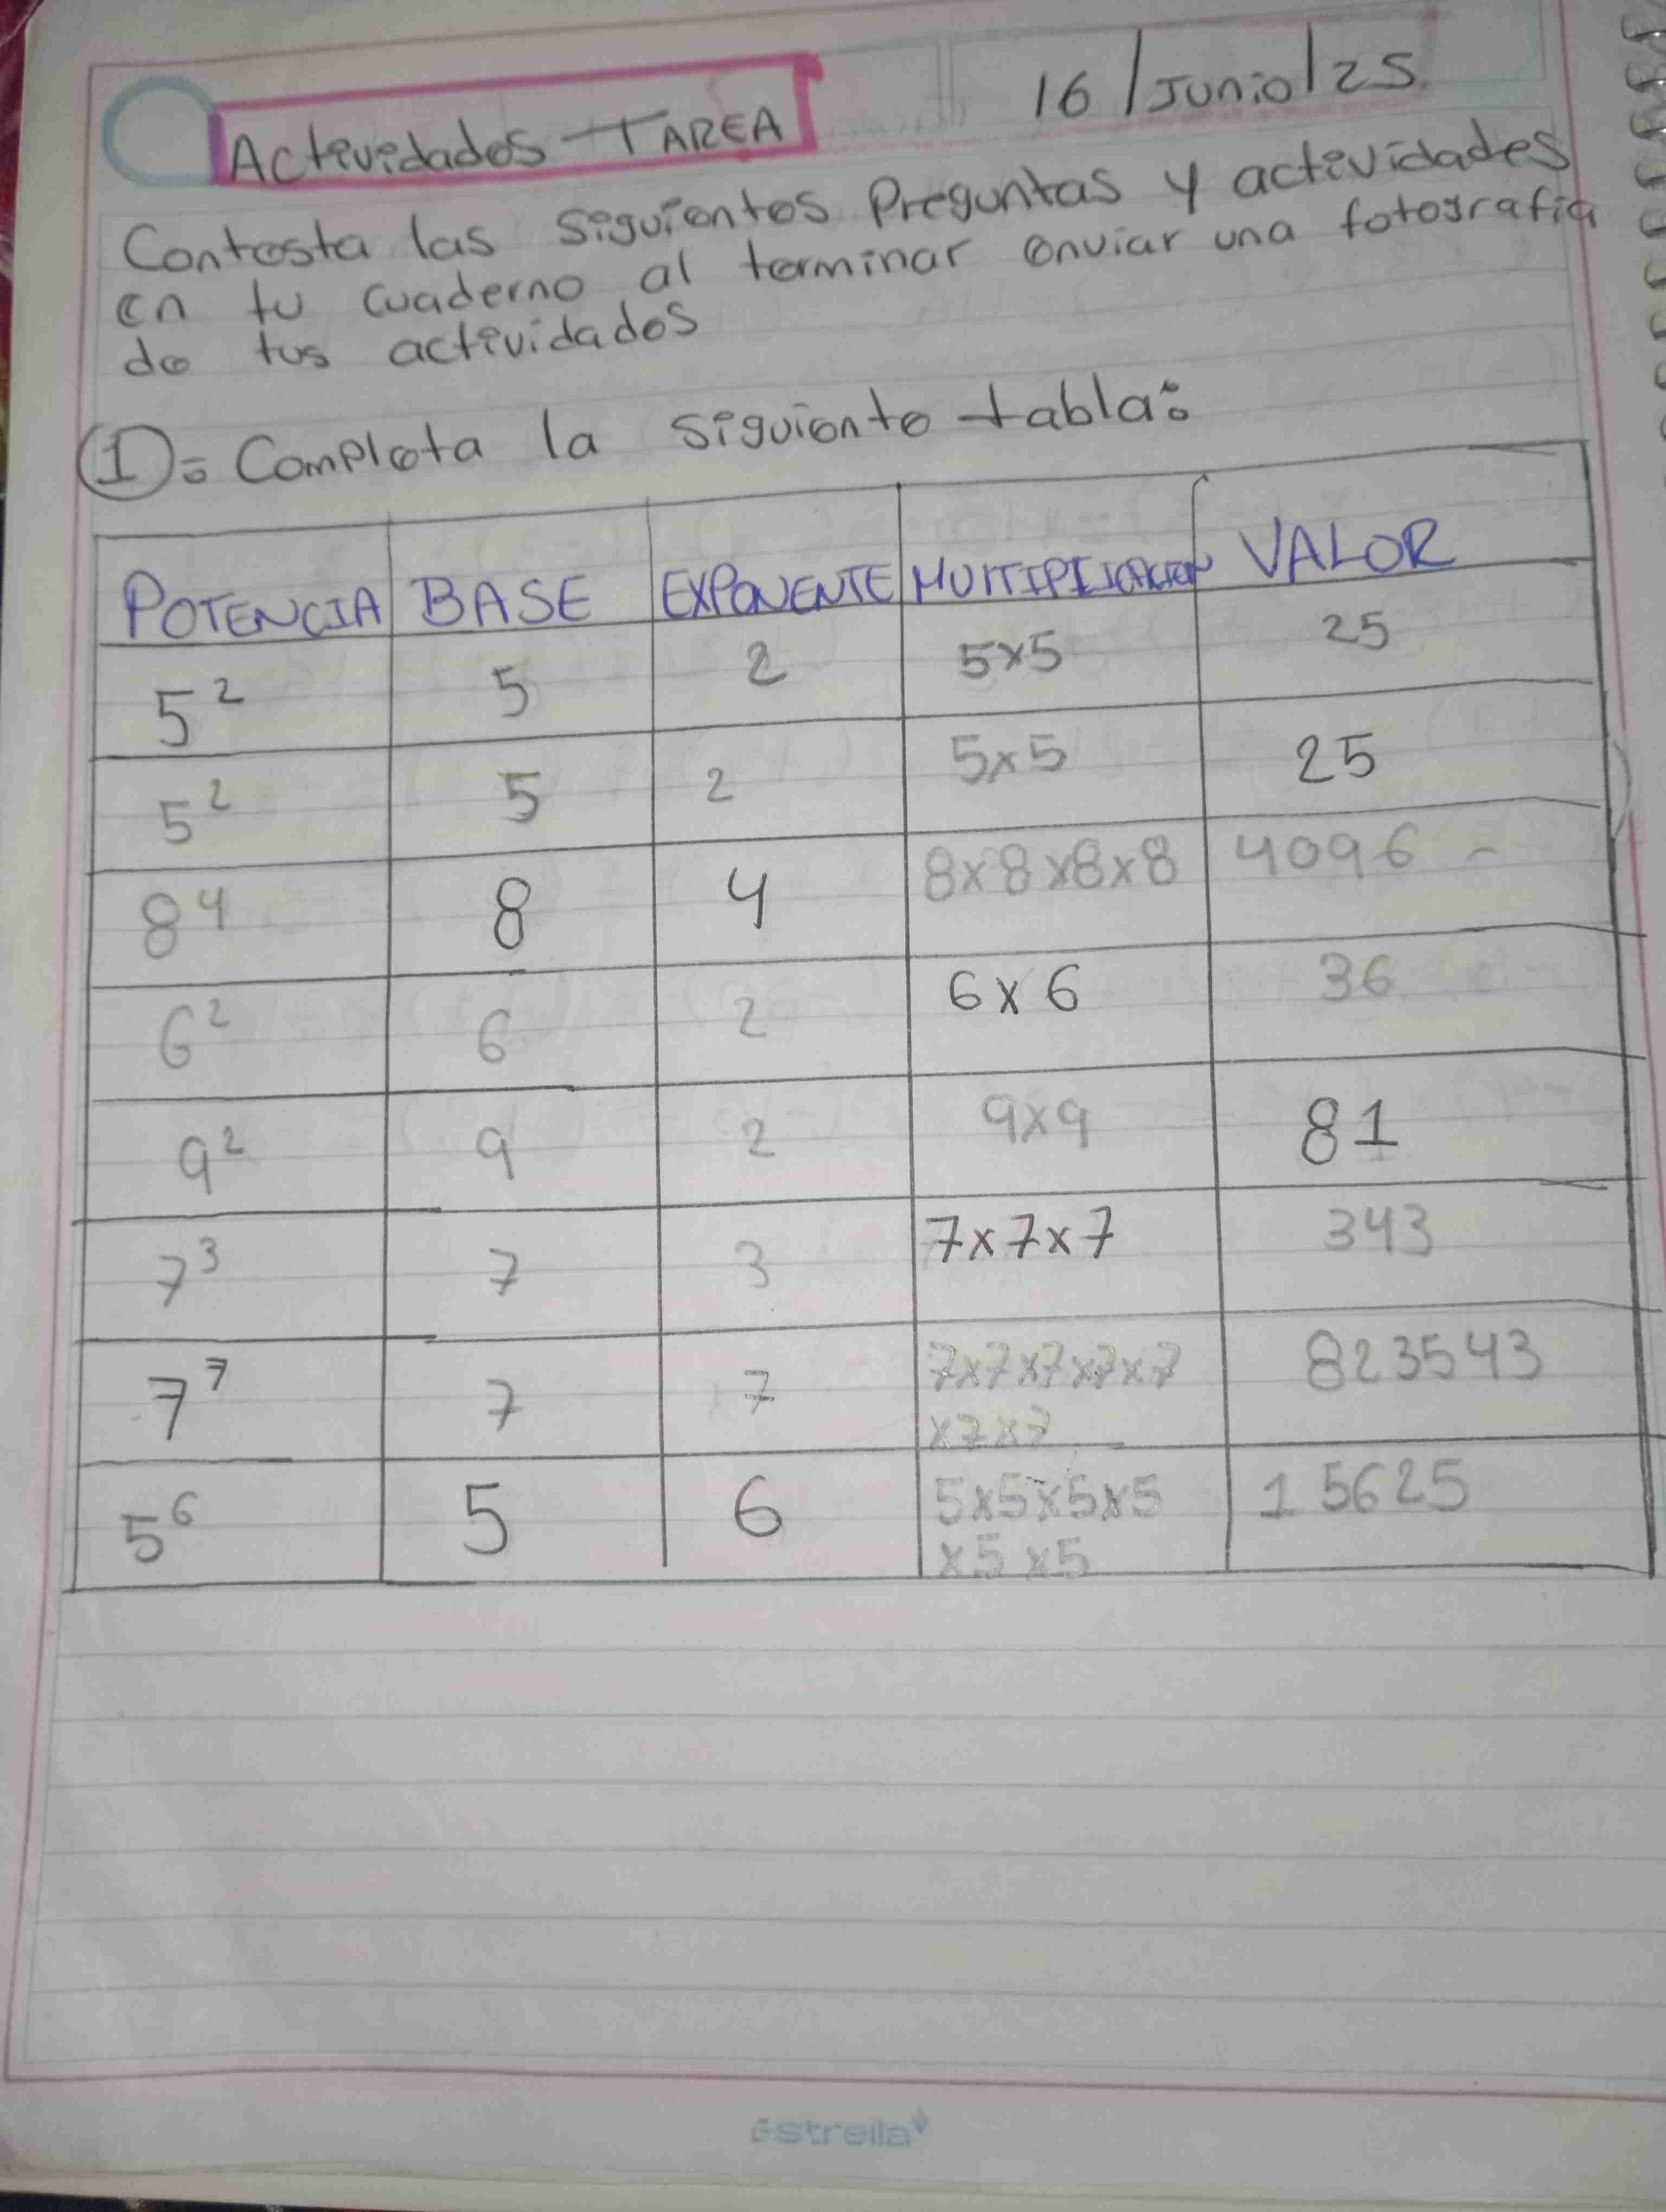 Actividades - TAREA
16/Junio/25
Contesta las siguientes Preguntas y actividades
en tu cuaderno al terminar enviar una fotografía
de tus actividades
1= Completa la siguiente tabla:
POTENCIA BASE EXPONENTE MULTIPLICACION VALOR
5² 5 2 5x5 25
5² 5 2 5x5 25
8⁴ 8 4 8x8x8x8 4096
6² 6 2 6x6 36
9² 9 2 9x9 81
7³ 7 3 7x7x7 343
7⁷ 7 7 7x7x7x7x7 823543
x7x7
5⁶ 5 6 5x5x5x5 15625
x5x5
Estrella